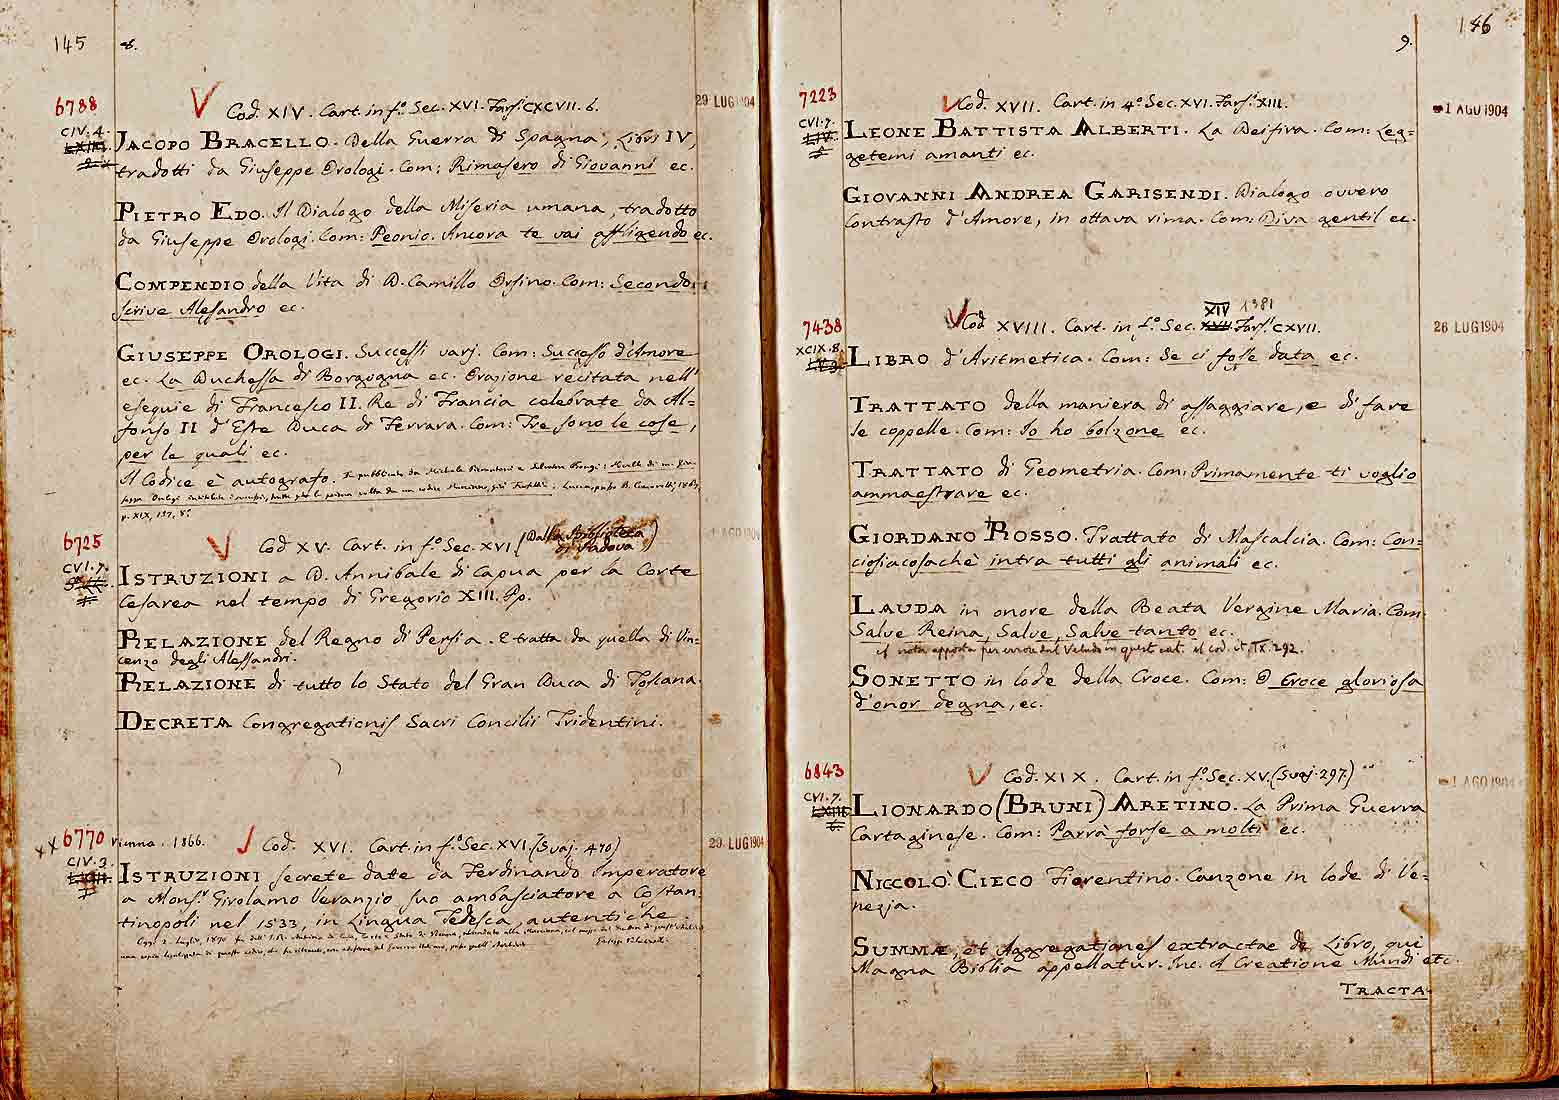 145 8.
6788
CIV. 4.
Cod. XIV. Cart. in f.º Sec. XVI. Farsi. CXCVII. 6.
29 LUG 1904
JACOPO BRACELLO. Della Guerra di Spagna, Libri IV,
tradotti da Giuseppe Orologi. Com: Rimasero di Giovanni ec.
PIETRO EDO. Il Dialogo della Miseria umana, tradotto
da Giuseppe Orologi. Com: Peonio. Ancora te vai affligendo ec.
COMPENDIO della Vita di D. Camillo Orsino. Com: Secondo
scrive Alesandro ec.
GIUSEPPE OROLOGI. Successi varj. Com: Successo d'Amore
ec. La Duchessa di Borgogna ec. Orazione recitata nell'
esequie di Francesco II. Re di Francia celebrate da Al=
fonso II d'Este Duca di Ferrara. Com: Tre sono le cose,
per le quali ec.
Il Codice è autografo.
p. XIX, 137, 8º
6725
CVI. 7.
Cod XV. Cart. in f.º Sec. XVI. (Dalla Biblioteca
di Padova)
1 AGO 1904
ISTRUZIONI a D. Annibale di Capua per la Corte
Cesarea nel tempo di Gregorio XIII. Pp.
RELAZIONE del Regno di Persia. E tratta da quella di Vin=
cenzo degli Alessandri.
RELAZIONE di tutto lo Stato del Gran Duca di Toscana.
DECRETA Congregationis Sacri Concilii Tridentini.
xx 6770 Vienna. 1866.
CIV. 3.
Cod. XVI. Cart. in f.º Sec. XVI. (Svaj. 470)
29 LUG 1904
ISTRUZIONI secrete date da Ferdinando Imperatore
a Mons.r Girolamo Veranzio suo ambasciatore a Costan=
tinopoli nel 1533, in Lingua Tedesca, autentiche.
146
9.
7223
CVI. 7.
Cod. XVII. Cart. in 4º Sec. XVI. Farsi. XIII.
1 AGO 1904
LEONE BATTISTA ALBERTI. La Deifira. Com: Leg=
getemi amanti ec.
GIOVANNI ANDREA GARISENDI. Dialogo ovvero
Contrasto d'Amore, in ottava rima. Com: Diva gentil ec.
XIV 1381
7438
XCIX. 8.
Cod XVIII. Cart. in f.º Sec. XVII Farsi. CXVII.
26 LUG 1904
LIBRO d'Aritmetica. Com: Se ci fosse data ec.
TRATTATO della maniera di assaggiare, e di fare
le coppelle. Com: Io ho bolzone ec.
TRATTATO di Geometria. Com: Primamente ti voglio
ammaestrare ec.
GIORDANO ROSSO. Trattato di Mascalcia. Com: Con=
ciosiacosachè intra tutti gli animali ec.
LAUDA in onore della Beata Vergine Maria. Com:
Salve Reina, Salve, Salve tanto ec.
cf nota apposta per errore dal Veludo in quest cat. al cod. it. IX. 292.
SONETTO in lode della Croce. Com: O Croce gloriosa
d'onor degna, ec.
6843
CVI. 7.
Cod. XIX. Cart. in f.º Sec. XV. (Svaj. 297.)
1 AGO 1904
LIONARDO (BRUNI) ARETINO. La Prima Guerra
Cartaginese. Com: Parrà forse a molti ec.
NICCOLÒ CIECO Fiorentino. Canzone in lode di Ve=
nezia.
SUMMÆ, et Aggregationes extractae de Libro, qui
Magna Biblia appellatur. Inc. A Creatione Mundi etc.
TRACTA-